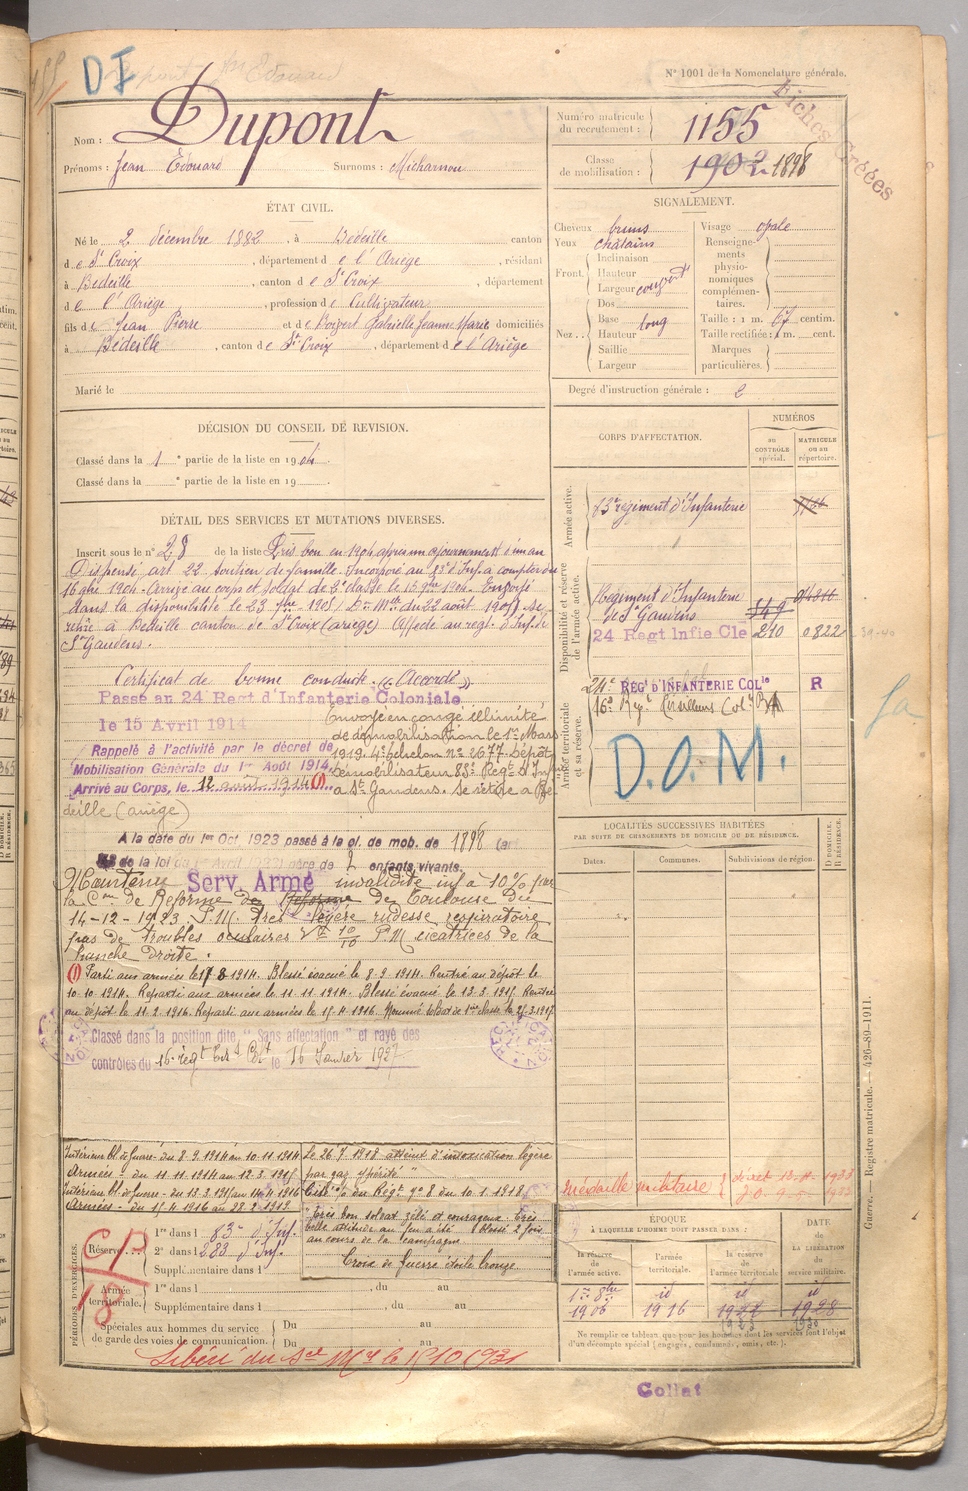 D I
N° 1001 de la Nomenclature générale.
Fiches Créées
Nom : Dupont
Prénoms : Jean Edouard Surnoms : Micharnou
Numéro matricule du recrutement : 1155
Classe de mobilisation : 1902 1898
ÉTAT CIVIL.
Né le 2 décembre 1882, à Bédeille canton
de Ste Croix, département de l'Ariège, résidant
à Bédeille, canton de Ste Croix, département
de l'Ariège, profession de Cultivateur
fils de Jean Pierre et de Gabrielle Jeanne Marie domiciliés
à Bédeille, canton de Ste Croix, département de l'Ariège
Marié le
SIGNALEMENT.
Cheveux bruns
Yeux châtains
Front. Inclinaison
Hauteur
Largeur
Dos
Nez. Base
Hauteur long
Saillie
Largeur
Visage opale
Renseignements physionomiques complémentaires.
Taille : 1 m. 67 centim.
Taille rectifiée : 1 m. cent.
Marques particulières.
Degré d'instruction générale : 2
DÉCISION DU CONSEIL DE REVISION.
Classé dans la 1e partie de la liste en 1904.
Classé dans la e partie de la liste en 19
CORPS D'AFFECTATION.
NUMÉROS
au CONTRÔLE spécial.
MATRICULE ou au répertoire.
Armée active.
83e régiment d'Infanterie
Disponibilité et réserve de l'armée active.
Régiment d'Infanterie
de St Gaudens 549
24 Regt Infie Cle 210 0822
39-40
Armée territoriale et sa réserve.
24e REGt D'INFANTERIE COLle R
16e Regt Tirailleurs Colx
D.O.M.
DÉTAIL DES SERVICES ET MUTATIONS DIVERSES.
Inscrit sous le n° 28 de la liste Pris bon en 1904 après un ajournement d'un an
Dispensé art 22 soutien de famille. Incorporé au 83e d'Inf. à compter du
16 9bre 1904. Arrivé au corps et soldat de 2e classe le 15 9bre 1904. Envoyé
dans la disponibilité le 23 7bre 1905. Don Mlle du 22 août 1905. Se
retire à Bédeille canton de Ste Croix (ariège) Affecté au regt. d'Inf. de
St Gaudens.
Certificat de bonne conduite. « Accordé »
Passé au 24 Regt d'Infanterie Coloniale
le 15 Avril 1914
Rappelé à l'activité par le décret de
Mobilisation Générale du 1er Août 1914.
Arrivé au Corps, le 12 août 1914 (1)
Envoyé en congé illimité
de démobilisation le 1er Mars
1919 4e échelon n° 2677 Dépôt
démobilisateur 83e Regt d'Inf
à St Gaudens. Se retire à Bé
deille (ariège)
A la date du 1er Oct. 1923 passé à la cl. de mob. de 1898
de la loi du 1er Avril 1923 père de 2 enfants vivants.
Maintenu Serv. Armé invalidité inf. à 10% par
la Con de Reforme de Reforme de Toulouse du
14-12-1923 P.M. Très légère rudesse respiratoire
pas de troubles oculaires V = 10/10 P.M cicatrices de la
hanche droite.
(1) Parti aux armées le 17 8 1914. Blessé évacué le 8.9.1914. Rentré au dépôt le
10.10.1914. Reparti aux armées le 11.11.1914. Blessé évacué le 13.3.1915. Rentré
au dépôt le 11.2.1916. Reparti aux armées le 15.4.1916. Nommé soldat de 1ère classe le
Classé dans la position dite " Sans affectation " et rayé des
contrôles du 16e régt le 16 Janvier 1927
LOCALITÉS SUCCESSIVES HABITÉES
PAR SUITE DE CHANGEMENTS DE DOMICILE OU DE RÉSIDENCE.
Dates.
Communes.
Subdivisions de région.
D DOMICILE. R RÉSIDENCE.
Médaille militaire
Intérieur bl. de guerre - du 8.9.1914 au 10.11.1914
Armées - du 11.11.1914 au 12.3.1915
Intérieur bl. de guerre - du 13.3.1915 au 14.4.1916
Armées - du 15.4.1916 au 28.2.1919
Le 26.7.1918 atteint d'intoxication légère
par gaz "ypérité"
Cité o/ du Régt n° 8 du 10.1.1918
"Très bon soldat zélé et courageux. Très
belle attitude au feu a été blessé 2 fois
au cours de la campagne.
Croix de Guerre étoile bronze
PÉRIODES D'EXERCICES.
Réserve.
1re dans l 83e d'Inf.
2e dans l 283 d'Inf.
Supplémentaire dans l
CP
18
Armée territoriale.
1re dans l , du au
Supplémentaire dans l , du au
Spéciales aux hommes du service
de garde des voies de communication.
Du au
Du au
Libéré du Sce Mre le 15 10 1931
ÉPOQUE
À LAQUELLE L'HOMME DOIT PASSER DANS :
la réserve de l'armée active.
l'armée territoriale.
la réserve de l'armée territoriale
DATE DE LA LIBÉRATION du service militaire.
1er 8bre id id id
1906 1916 1922 1928
1923 1930
Ne remplir ce tableau que pour les hommes dont les services font l'objet
d'un décompte spécial (engagés, condamnés, omis, etc.).
Guerre. — Registre matricule. — 426-89-1911.
Collat